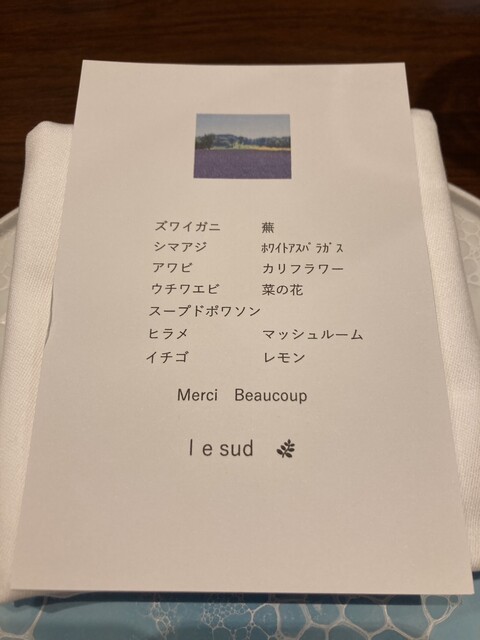 ズワイガニ 蕪
シマアジ ﾎﾜｲﾄｱｽﾊﾟﾗｶﾞｽ
アワビ カリフラワー
ウチワエビ 菜の花
スープドポワソン
ヒラメ マッシュルーム
イチゴ レモン
Merci Beaucoup
le sud